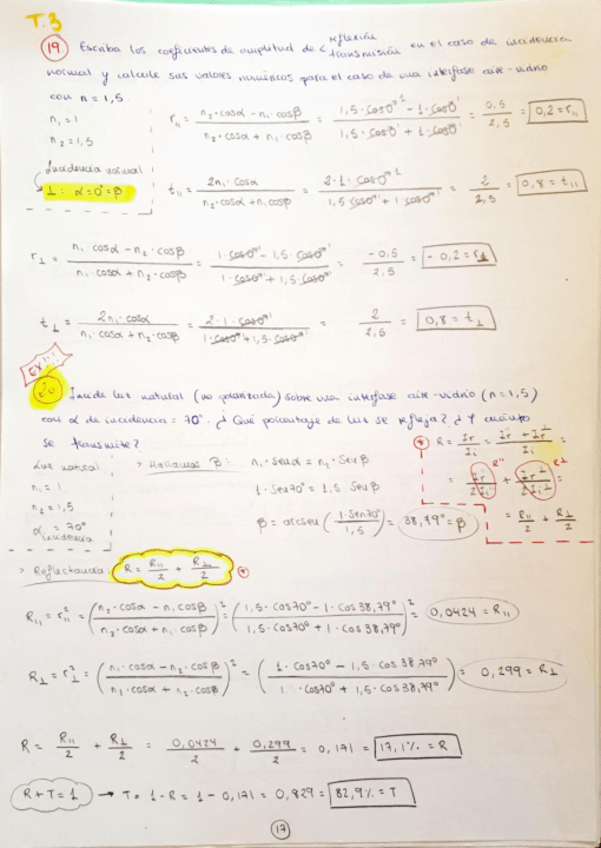 T.3
19. Escriba los coeficientes de amplitud de < reflexión transmisión en el caso de incidencia
normal y calcule sus valores numéricos para el caso de una interfase aire-vidrio
con n = 1,5.
n₁ = 1
n₂ = 1,5
Incidencia normal
⊥: α = 0° = β
r∥ = (n₂·cosα − n₁·cosβ)/(n₂·cosα + n₁·cosβ) = (1,5·cos0° − 1·cos0°)/(1,5·cos0° + 1·cos0°) = 0,5/2,5 = 0,2 = r∥
t∥ = 2n₁·cosα/(n₂cosα + n₁cosβ) = 2·1·cos0°/(1,5·cos0° + 1·cos0°) = 2/2,5 = 0,8 = t∥
r⊥ = (n₁·cosα − n₂·cosβ)/(n₁·cosα + n₂·cosβ) = (1·cos0° − 1,5·cos0°)/(1·cos0° + 1,5·cos0°) = −0,5/2,5 = −0,2 = r⊥
t⊥ = 2n₁·cosα/(n₁·cosα + n₂·cosβ) = 2·1·cos0°/(1·cos0° + 1,5·cos0°) = 2/2,5 = 0,8 = t⊥
EX!!!
20. Incide luz natural (no polarizada) sobre una interfase aire-vidrio (n = 1,5)
con α de incidencia = 70°. ¿Qué porcentaje de luz se refleja? ¿Y cuánto
se transmite?
Luz natural
n₁ = 1
n₂ = 1,5
α incidencia = 70°
> Hallamos β: n₁·senα = n₂·senβ
1·sen70° = 1,5·senβ
β = arcsen(1·sen70°/1,5) = 38,79° = β
* R = Ir/Ii = (Ir∥ + Ir⊥)/Ii =
= Ir∥/2Ii∥ + Ir⊥/2Ii⊥ =
R∥ R⊥
= R∥/2 + R⊥/2
> Reflectancia: R = R∥/2 + R⊥/2 *
R∥ = r∥² = ((n₂·cosα − n₁cosβ)/(n₂·cosα + n₁·cosβ))² = ((1,5·cos70° − 1·cos38,79°)/(1,5·cos70° + 1·cos38,79°))² = 0,0424 = R∥
R⊥ = r⊥² = ((n₁·cosα − n₂·cosβ)/(n₁·cosα + n₂·cosβ))² = ((1·cos70° − 1,5·cos38,79°)/(1·cos70° + 1,5·cos38,79°))² = 0,299 = R⊥
R = R∥/2 + R⊥/2 = 0,0424/2 + 0,299/2 = 0,171 = 17,1% = R
R+T=1 → T = 1−R = 1 − 0,171 = 0,829 = 82,9% = T
17